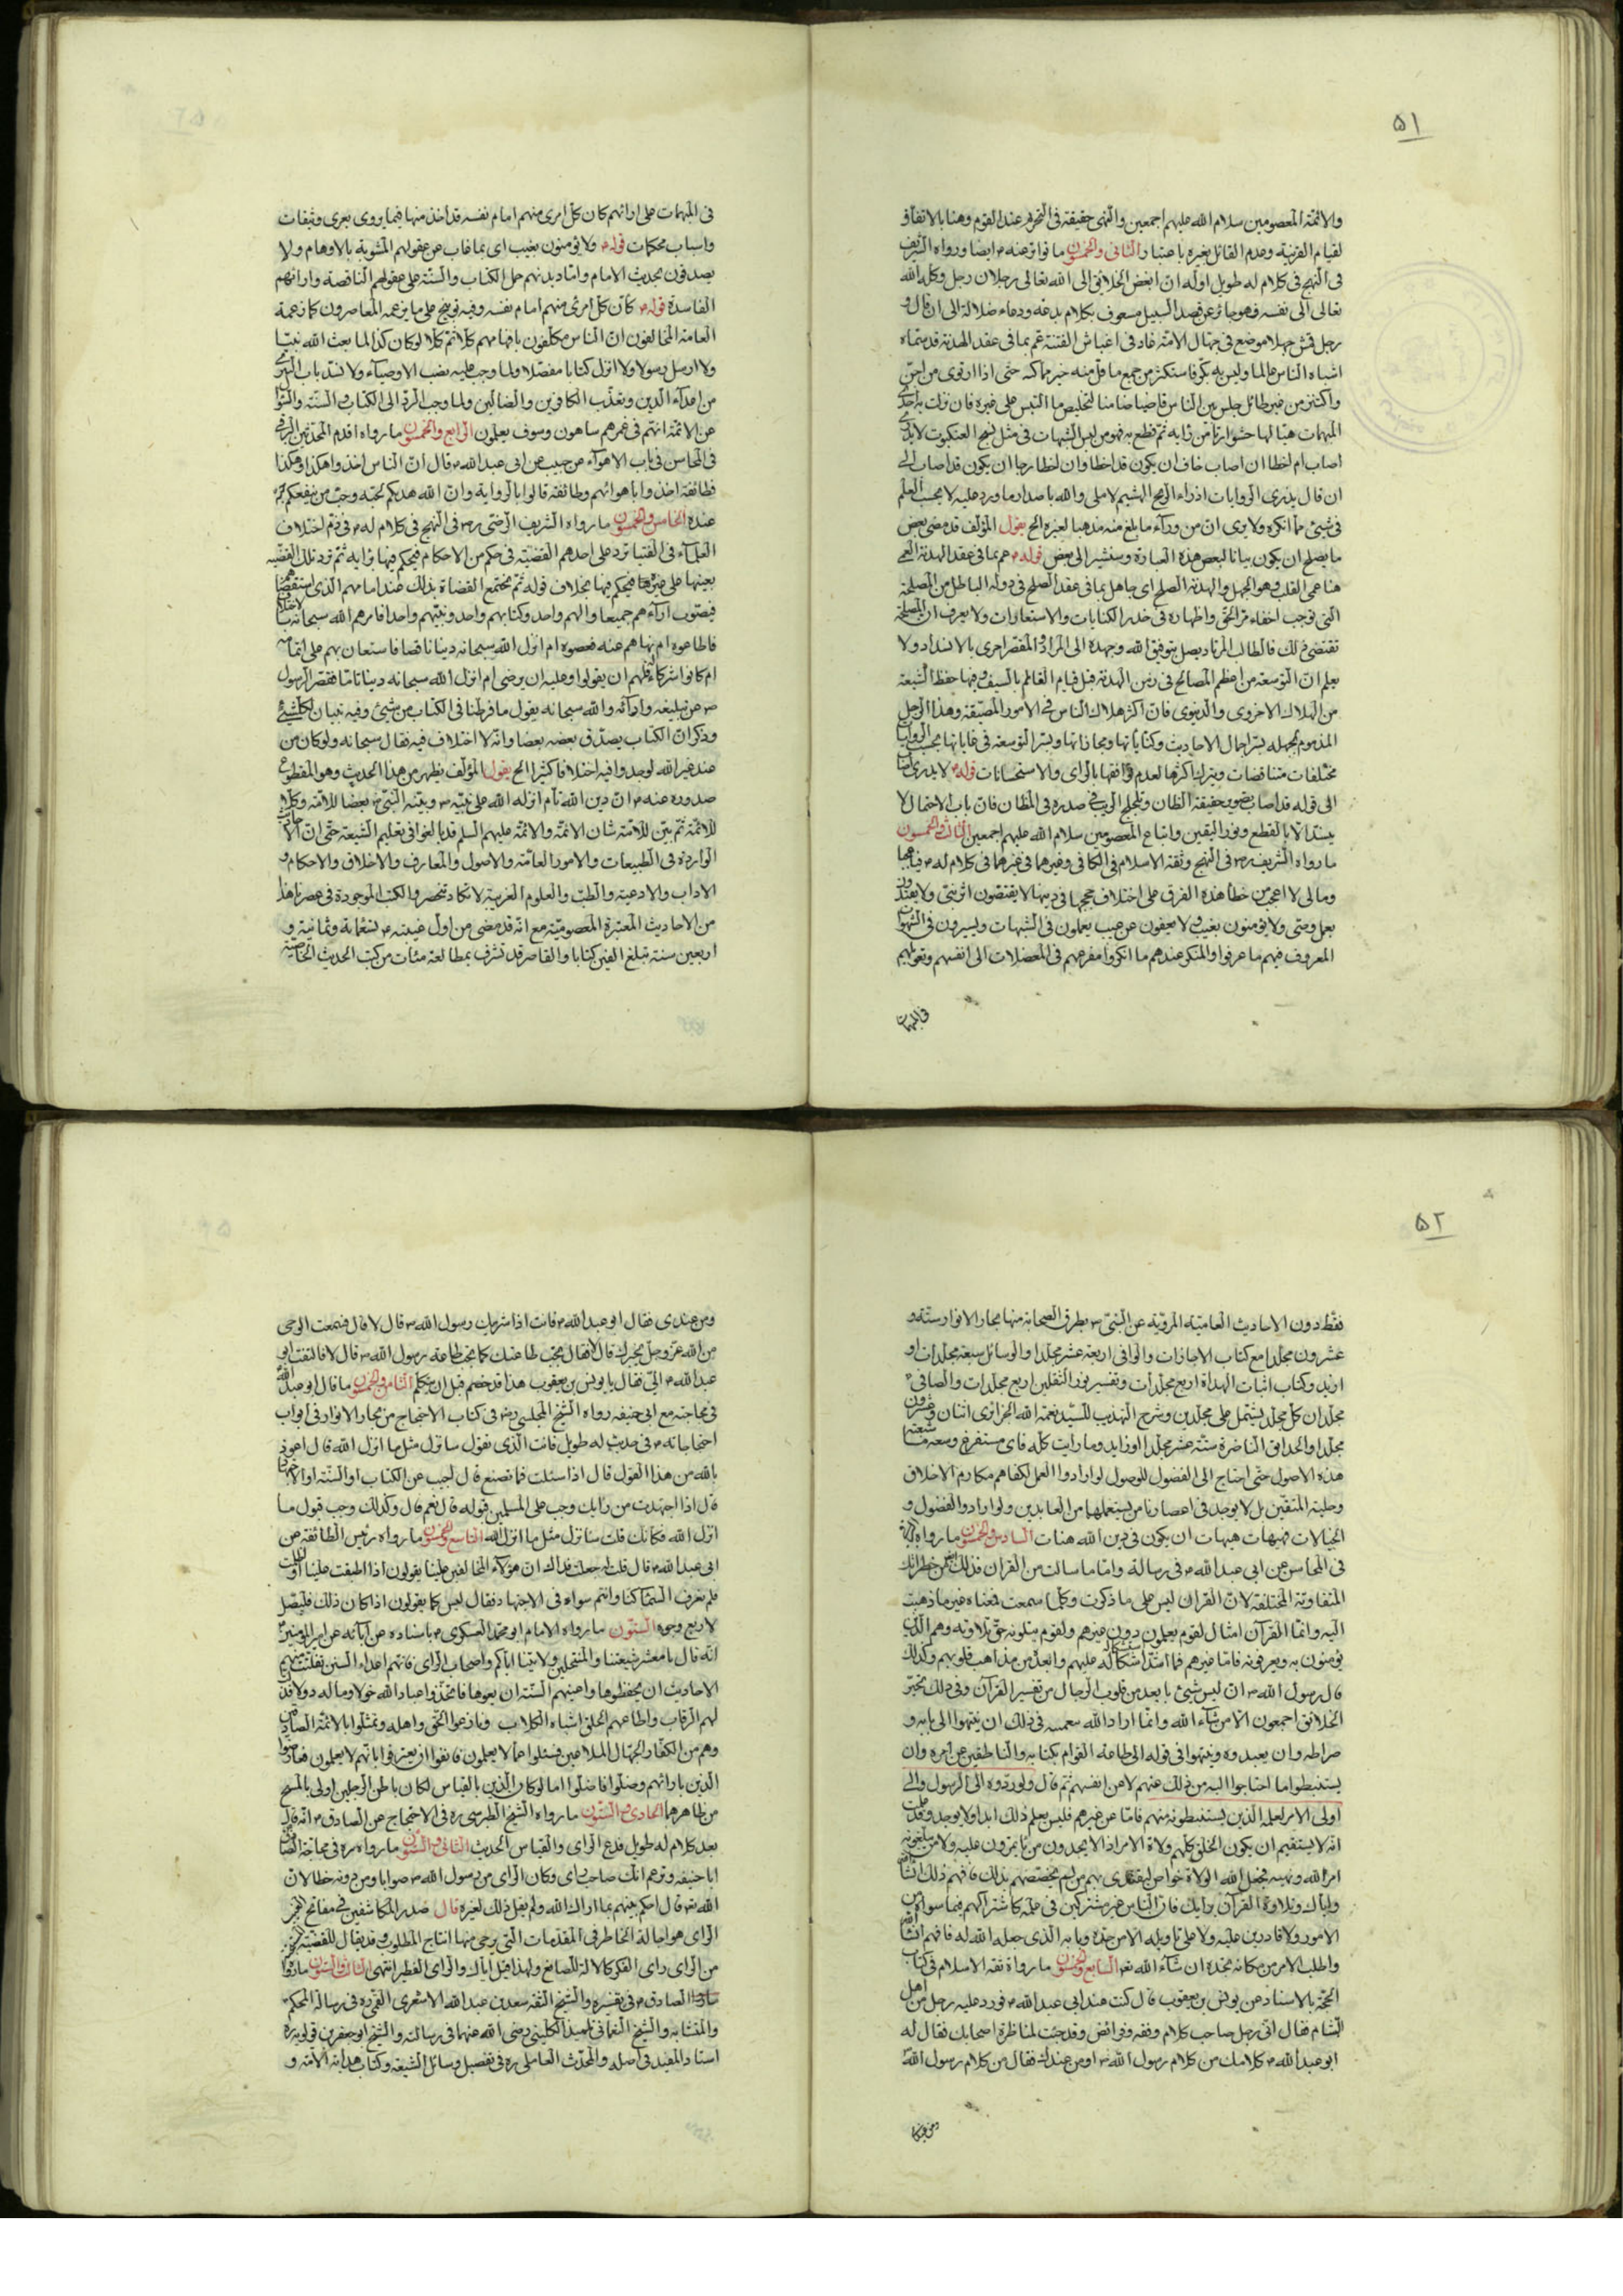 ۵۱
والائمة المعصومين سلام الله عليهم اجمعين والنهى حقيقة فى التحريم عند القوم وهنا بالاتفاق
لقيام القرينة وعدم القائل بغيره باعتبار الثانى والخمسون ما تواتر عنه ايضا ورواه الشريف
فى النهج فى كلام له طويل اوله ان ابغض الخلايق الى الله تعالى رجلان رجل وكله الله
تعالى الى نفسه فهو جائر عن قصد السبيل مشعوف بكلام بدعة ودعاء ضلالة الى ان قال و
رجل قمش جهلا موضع فى جهال الامة غاد فى اغباش الفتنة عم بما فى عقد الهدنة قد سماه
اشباه الناس عالما وليس به بكر فاستكثر من جمع ما قل منه خير مما كثر حتى اذا ارتوى من اجن
واكتنز من غير طائل جلس بين الناس قاضيا ضامنا لتخليص ما التبس على غيره فان نزلت به احدى
المبهمات هيأ لها حشوا رثا من رايه ثم قطع به فهو من لبس الشبهات فى مثل نسج العنكبوت لا يدرى
اصاب ام اخطا ان اصاب خاف ان يكون قد اخطا وان اخطا رجا ان يكون قد اصاب الى
ان قال يذرى الروايات اذراء الريح الهشيم لا ملى والله باصدار ما ورد عليه لا يحسب العلم
فى شيئ مما انكره ولا يرى ان من وراء ما بلغ منه مذهبا لغيره الخ يقول المؤلف قد مضى بعض
ما يصلح ان يكون بيانا لبعض هذه العبارة وسنشير الى بعض قوله عم بما فى عقد الهدنة العمى
هنا عمى القلب وهو الجهل والهدنة الصلح اى جاهل بما فى عقد الصلح فى دولة الباطل من المصلحة
التى توجب اخفاء مر الحق واظهاره فى خدر الكنايات والاستعارات ولا يعرف ان المصلحة
تقتضى ذلك فالطالب المرتاد يصل بتوفيق الله وجهده الى المراد والمقصر احرى بالانسداد ولا
يعلم ان التوسعة من اعظم المصالح فى زمن الهدنة قبل قيام القائم بالسيف وفيها حفظ الشيعة
من الهلاك الاخروى والدنيوى فان اكثر هلاك الناس فى الامور المضيقة وهذا الرجل
المذموم لجهله بسر اجمال الاحاديث وكناياتها ومجازاتها وبسر التوسعة فى غاياتها يحسب الروايات
مختلفات متناقضات ويترك اكثرها لعدم توافقها بالراى والاستحسانات قوله لا يدرى اصاب
الى قوله قد اصاب تصوير حقيقة الظان وتلجلج الريب فى صدره فى المظان فان باب الاحتمال لا
يسد الا بالقطع ونور اليقين واتباع المعصومين سلام الله عليهم اجمعين الثالث والخمسون
ما رواه الشريف فى النهج وثقة الاسلام فى الكافى وغيرهما فى غيرهما فى كلام له فيا عجبا
ومالى لا اعجب من خطأ هذه الفرق على اختلاف حججها فى دينها لا يقتصون اثر نبى ولا يقتدون
بعمل وصى ولا يؤمنون بغيب ولا يعفون عن عيب يعملون فى الشبهات ويسيرون فى الشهوات
المعروف فيهم ما عرفوا والمنكر عندهم ما انكروا مفزعهم فى المعضلات الى انفسهم وتعويلهم
فى المبهمات
فى المبهمات على ارائهم كان كل امرئ منهم امام نفسه قد اخذ منها فيما يروى بعرى وثيقات
واسباب محكمات قوله ولا يؤمنون بغيب اى بما غاب عن عقولهم المشوبة بالاوهام ولا
يصدقون بحديث الامام وانما ديدنهم حمل الكتاب والسنة على عقولهم الناقصة وارائهم
الفاسدة قوله كأن كل امرئ منهم امام نفسه وفيه توبيخ على ما يزعمه المعاصرون كما زعمه
العامة المخالفون ان الناس مكلفون بافهامهم كلا ثم كلا لو كان كذا لما بعث الله نبيا
ولا ارسل رسولا ولا انزل كتابا مفصلا ولما وجب عليه نصب الاوصياء ولانسد باب التبرى
من اعداء الدين وتعذب الكافرين والضالين ولما وجب الرد الى الكتاب والسنة والتواتر
عن الائمة انهم فى غمرهم ساهون وسوف يعلمون الرابع والخمسون ما رواه اقدم المحدثين البرقى
فى المحاسن فى باب الاهواء عن حبيب عن ابى عبد الله قال ان الناس اخذوا هكذا وهكذا
فطائفة اخذوا باهوائهم وطائفة قالوا بالرواية وان الله هديكم لحبه وحب من ينفعكم حبه
عنده الخامس والخمسون ما رواه الشريف الرضى فى النهج فى كلام له فى ذم اختلاف
العلماء فى الفتيا ترد على احدهم القضية فى حكم من الاحكام فيحكم فيها برايه ثم ترد تلك القضية
بعينها على غيره فيحكم فيها بخلاف قوله ثم يجتمع القضاة بذلك عند امامهم الذى استقضاهم
فيصوب اراءهم جميعا والههم واحد وكتابهم واحد ونبيهم واحد افامرهم الله سبحانه بالاختلاف
فاطاعوه ام نهاهم عنه فعصوه ام انزل الله سبحانه دينا ناقصا فاستعان بهم على اتمامه
ام كانوا شركاء له فلهم ان يقولوا وعليه ان يرضى ام انزل الله سبحانه دينا تاما فقصر الرسول
عن تبليغه وادائه والله سبحانه يقول ما فرطنا فى الكتاب من شيئ وفيه تبيان لكل شيئ
وذكر ان الكتاب يصدق بعضه بعضا وانه لا اختلاف فيه فقال سبحانه ولو كان من
عند غير الله لوجدوا فيه اختلافا كثيرا الخ يقول المؤلف يظهر من هذا الحديث وهو المقطوع
صدوره عنه ان دين الله تام انزله الله على نبيه وبينه النبى بعضا للامة وكلا
للائمة ثم بين للامة شان الائمة والائمة عليهم السلم قد بالغوا فى تعليم الشيعة حتى ان الاحاديث
الواردة فى الطبيعيات والامور العامة والاصول والمعارف والاخلاق والاحكام و
الاداب والادعية والطب والعلوم الغريبة لا تكاد تنحصر والكتب الموجودة فى عصرنا هذا
من الاحاديث المعتبرة المعصومية مع انه قد مضى من اول غيبته تسعمائة وثمانية و
اربعين سنة تبلغ الفين كتابا والقاصر قد تشرف بمطالعة مئات من كتب الحديث الخاصية
۵۲
فقط دون الاحاديث العامية المروية عن النبى بطرق الصحابة منها بحار الانوار ستة و
عشرون مجلدا مع كتاب الاجازات والوافى اربعة عشر مجلدا والوسائل سبعة مجلدات او
ازيد وكتاب اثبات الهداة اربع مجلدات وتفسير نور الثقلين اربع مجلدات والصافى
مجلدان كل مجلد يشتمل على مجلدين وشرح التهذيب للسيد نعمة الله الجزائرى اثنان وعشرون
مجلدا والحدائق الناضرة ستة عشر مجلدا او زايد وما رايت كله فاى مستفرغ وسعه متبع
هذه الاصول حتى احتاج الى الفضول للوصول لو ارادوا العمل لكفاهم مكارم الاخلاق
وحلية المتقين بل لا يوجد فى اعصارنا من يستعملها من العابدين ولو ارادوا الفضول و
الخيالات فهيهات هيهات ان يكون فى دين الله هنات السادس والخمسون ما رواه
فى المحاسن عن ابى عبد الله فى رسالة واما ما سالت من القران فذلك ايضا من خطراتك
المتفاوتة المختلفة لان القران ليس على ما ذكرت وكلما سمعت فمعناه غير ما ذهبت
اليه وانما القرآن امثال لقوم يعلمون دون غيرهم ولقوم يتلونه حق تلاوته وهم الذين
يؤمنون به ويعرفونه فاما غيرهم فما اشد اشكاله عليهم وابعده من مذاهب قلوبهم وكذلك
قال رسول الله ان ليس شيئ بابعد من قلوب الرجال من تفسير القرآن وفى ذلك تحير
الخلائق اجمعون الا من شاء الله وانما اراد الله بتعميته فى ذلك ان ينتهوا الى بابه و
صراطه وان يعبدوه وينتهوا فى قوله الى طاعة القوام بكتابه والناطقين عن امره وان
يستنبطوا ما احتاجوا اليه من ذلك عنهم لا عن انفسهم ثم قال ولو ردوه الى الرسول والى
اولى الامر لعلمه الذين يستنبطونه منهم فاما عن غيرهم فليس يعلم ذلك ابدا ولا يوجد وقد علمت
انه لا يستقيم ان يكون الخلق كلهم ولاة الامر اذ لا يجدون من ياتمرون عليه ولا من يبلغونه
امر الله ونهيه فجعل الله الولاة خواص ليقتدى بهم من لم يخصصهم بذلك فافهم ذلك انشا
واياك وتلاوة القرآن برايك فان الناس غير مشتركين فى علمه كاشتراكهم فيما سواه من
الامور ولا قادرين عليه ولا على تاويله الا من حده وبابه الذى جعله الله له فافهم انشا الله
واطلب الامر من مكانه تجده ان شاء الله السابع والخمسون ما رواه ثقة الاسلام فى كتاب
الحجة بالاسناد عن يونس بن يعقوب قال كنت عند ابى عبد الله فورد عليه رجل من اهل
الشام فقال انى رجل صاحب كلام وفقه وفرائض وقد جئت لمناظرة اصحابك فقال له
ابو عبد الله كلامك من كلام رسول الله او من عندك فقال من كلام رسول الله
ومن عندى
ومن عندى فقال ابو عبد الله فانت اذا شريك رسول الله قال لا قال فسمعت الوحى
من الله عز وجل يخبرك قال لا فقال تجب طاعتك كما تجب طاعة رسول الله قال لا فالتفت ابو
عبد الله الى فقال يا يونس بن يعقوب هذا قد خصم قبل ان يتكلم الثامن والخمسون ما قال ابو عبد الله
فى محاجته مع ابى حنيفه رواه الشيخ المجلسى فى كتاب الاحتجاج من بحار الانوار فى ابواب
احتجاجاته فى حديث له طويل فانت الذى تقول سانزل مثل ما انزل الله قال اعوذ
بالله من هذا القول قال اذا سئلت فما تصنع قال اجيب عن الكتاب او السنة او الاجتهاد
قال اذا اجتهدت من رايك وجب على المسلمين قبوله قال نعم قال وكذلك وجب قبول ما
انزل الله فكانك قلت سانزل مثل ما انزل الله التاسع والخمسون ما رواه رئيس الطائفة عن
ابى عبد الله قال قلت له جعلت فداك ان هؤلاء المخالفين علينا يقولون اذا اطبقت علينا او اظلمت
فلم نعرف السماء كنا وانتم سواء فى الاجتهاد فقال ليس كما يقولون اذا كان ذلك فليصل
لاربع وجوه الستون ما رواه الامام ابو محمد العسكرى باسناده عن آبائه عن امير المؤمنين
انه قال يا معشر شيعتنا والمنتحلين ولايتنا اياكم واصحاب الراى فانهم اعداء السنن تفلتت منهم
الاحاديث ان يحفظوها واعيتهم السنة ان يعوها فاتخذوا عباد الله خولا وماله دولا فذلت
لهم الرقاب واطاعهم الخلق اشباه الكلاب ونازعوا الحق واهله وتمثلوا بالائمة الصادقين
وهم من الكفار الجهال الملاعين فسئلوا عما لا يعلمون فانفوا ان يعترفوا بانهم لا يعلمون فعارضوا
الدين بارائهم وضلوا فاضلوا اما لو كان الدين بالقياس لكان باطن الرجلين اولى بالمسح
من ظاهرهما الحادى والستون ما رواه الشيخ الطبرسى فى الاحتجاج عن الصادق انه قال
بعد كلام له طويل فدع الراى والقياس الحديث الثانى والستون ما رواه فى محاجة الصادق
ابا حنيفه وتزعم انك صاحب راى وكان الراى من رسول الله صوابا ومن دونه خطا لان
الله قال احكم بينهم بما اراك الله ولم يقل ذلك لغيره قال صدر المكاشفين فى مفاتح الغيب
الراى هو اجالة الخاطر فى المقدمات التى يرجى منها انتاج المطلوب وقد يقال للقضية
من الراى راى الفكر كالالة للصانع ولهذا قيل اياك والراى الفطير انتهى الثالث والستون ما رواه
الصادق فى تفسيره والشيخ الثقة سعد بن عبد الله الاشعرى القمى فى رسالة المحكم
والمتشابه والشيخ النعمانى تلميذ الكلينى رضى الله عنهما فى رسالته والشيخ ابو جعفر بن قولويه
استاد المفيد فى اصله والمحدث العاملى فى تفصيل وسائل الشيعة وكتاب هداية الامة و